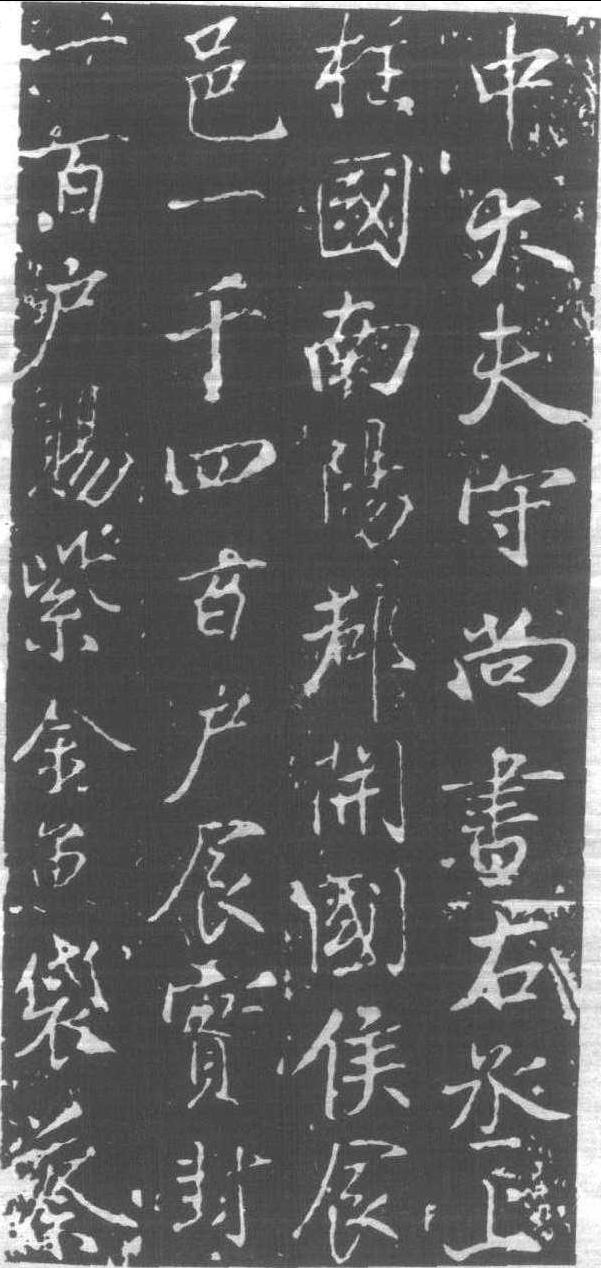 中大夫守尚書右丞上
柱國南陽郡開國侯食
邑一千四百户食實封
百户賜紫金魚袋蔡